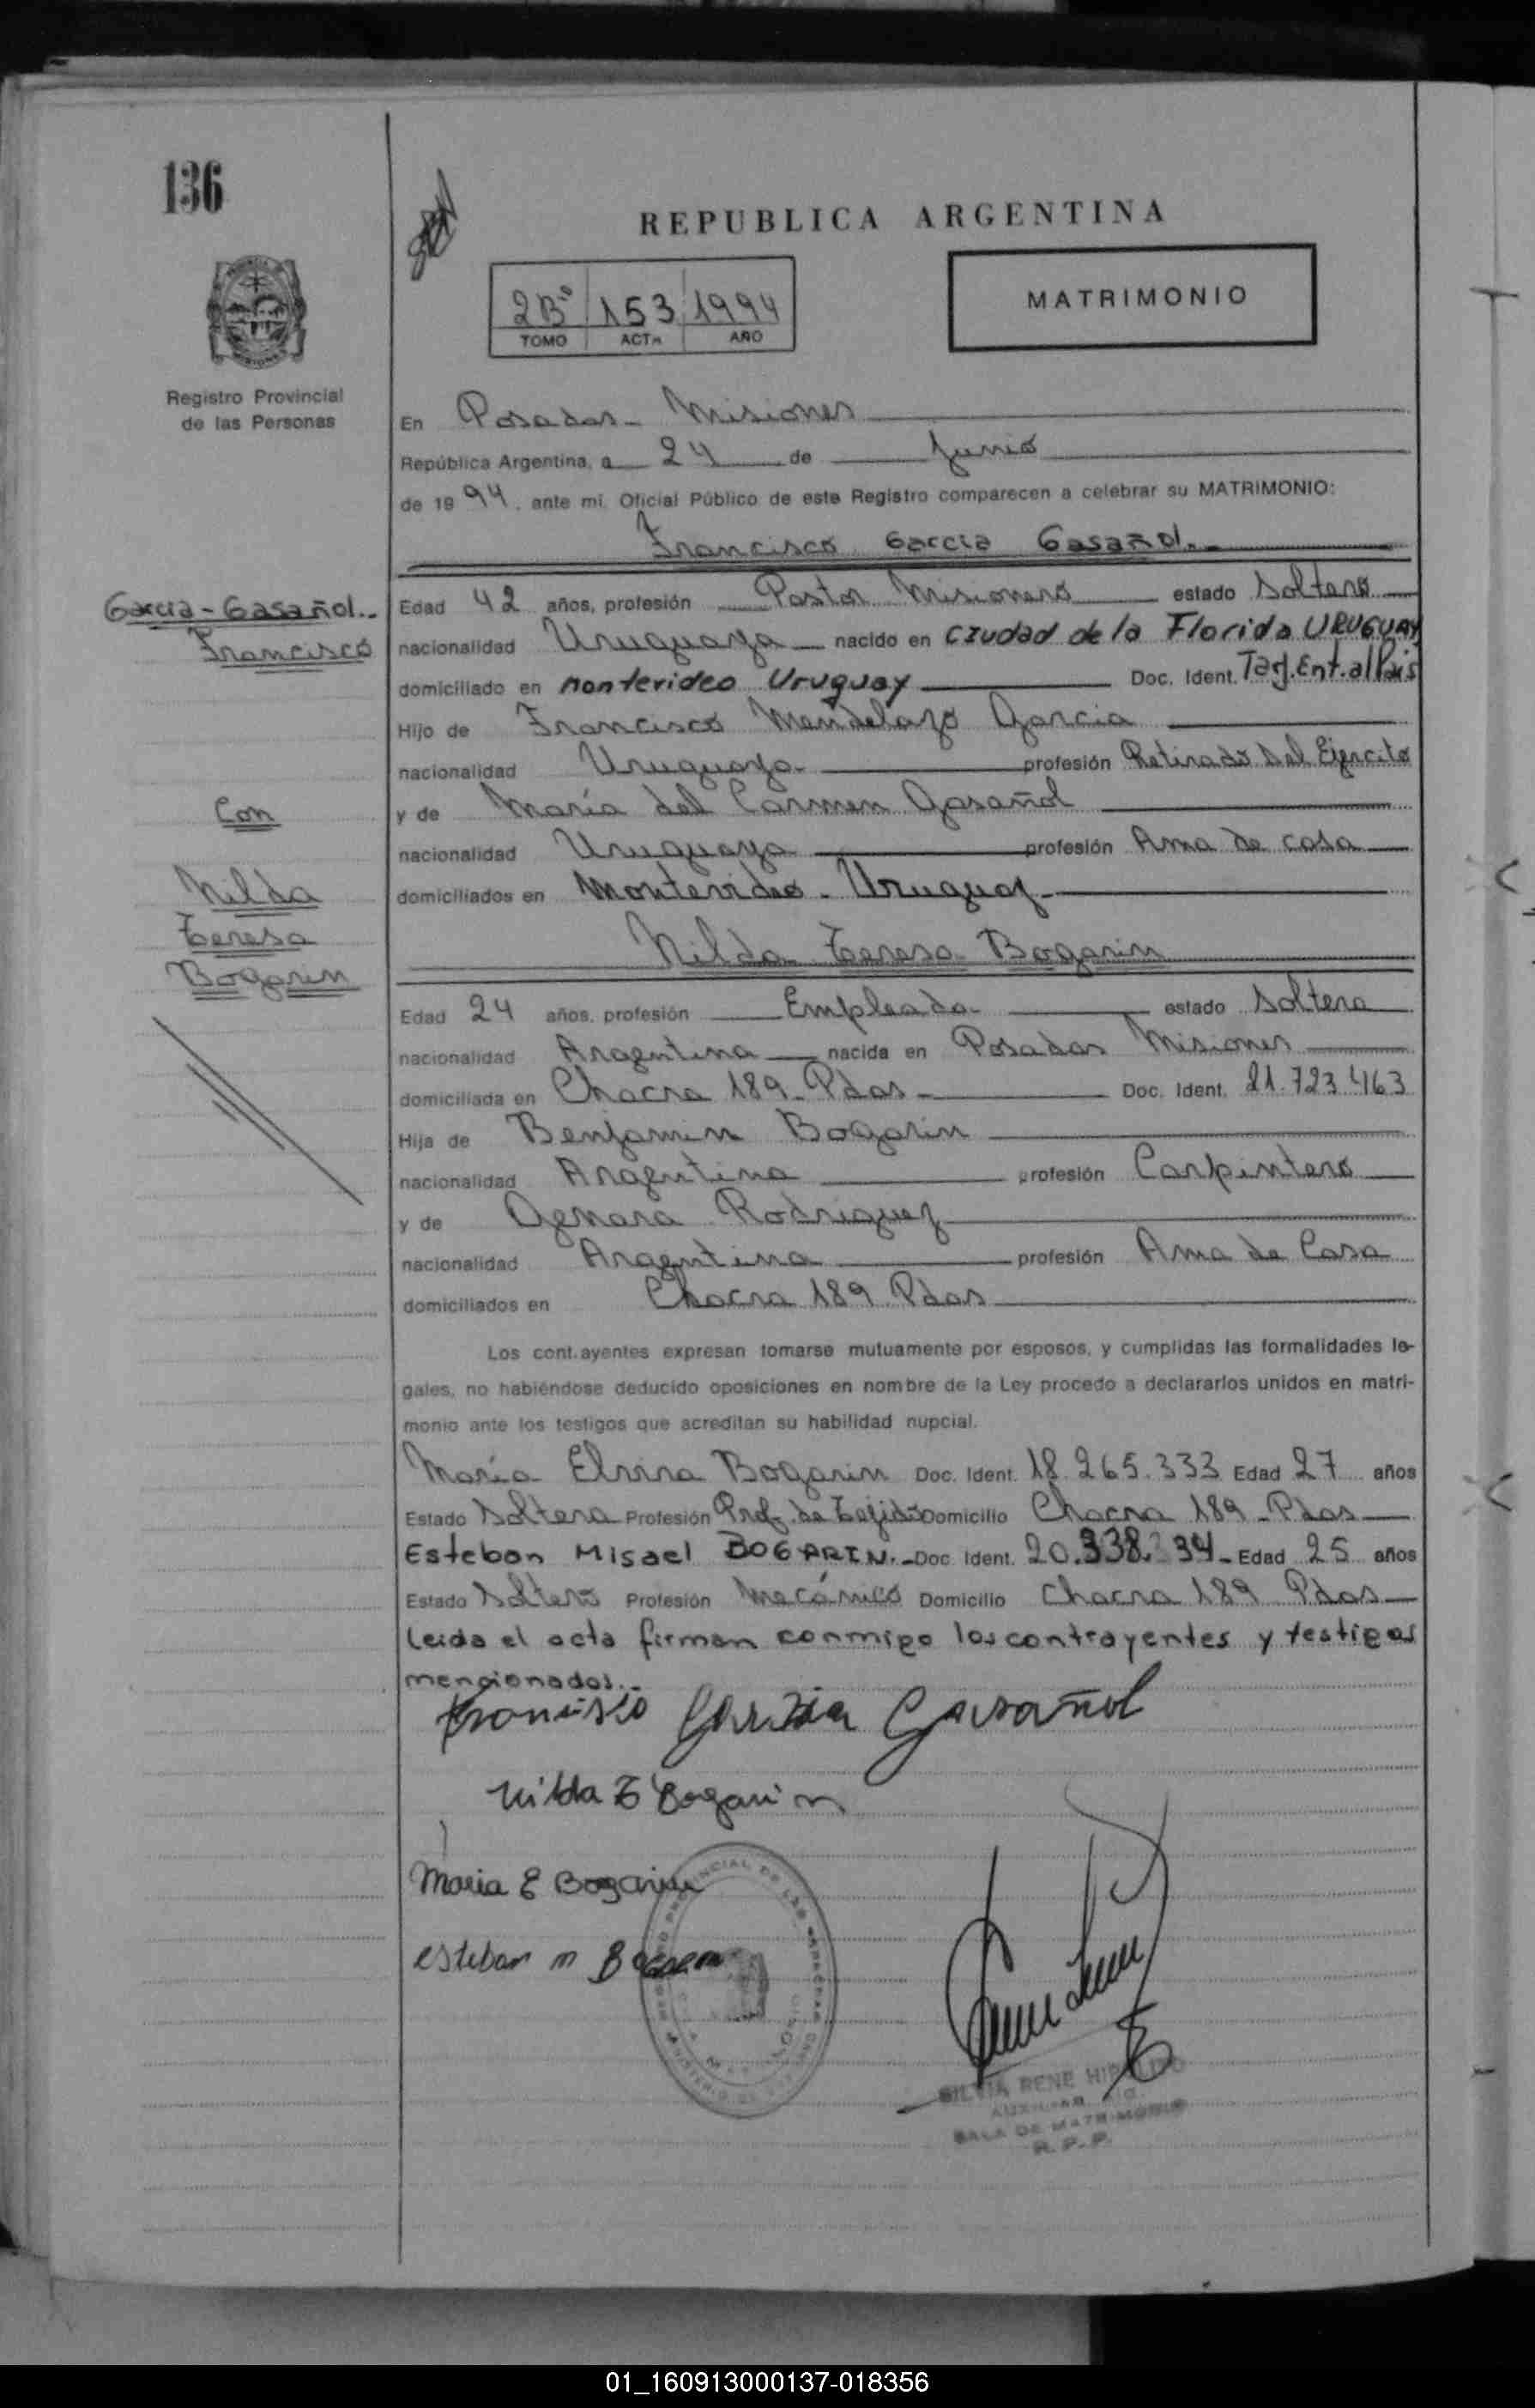 136
REPUBLICA ARGENTINA
2Bº 153 1994
TOMO ACTA AÑO
MATRIMONIO
Registro Provincial
de las Personas
En Posadas - Misiones
República Argentina, a 24 de Junio
de 1994, ante mi, Oficial Público de este Registro comparecen a celebrar su MATRIMONIO:
Francisco Garcia Gasañol.-
Garcia - Gasañol.-
Francisco
Con
Nilda
Teresa
Bogarin
Edad 42 años, profesión Pastor Misionero estado Soltero
nacionalidad Uruguaya nacido en Ciudad de la Florida URUGUAY
domiciliado en Montevideo Uruguay Doc. Ident. Tarj. Ent. al Pais
Hijo de Francisco Garcia
nacionalidad Uruguaya profesión Retirado del Ejercito
y de María del Carmen Gasañol
nacionalidad Uruguaya profesión Ama de casa
domiciliados en Montevideo - Uruguay
Nilda Teresa Bogarin
Edad 24 años, profesión Empleada estado Soltera
nacionalidad Argentina nacida en Posadas Misiones
domiciliada en Chacra 189 - Pdas - Doc. Ident. 21.723.463
Hija de Benjamin Bogarin
nacionalidad Argentina profesión Carpintero
y de Genara Rodriguez
nacionalidad Argentina profesión Ama de Casa
domiciliados en Chacra 189 Pdas
Los contrayentes expresan tomarse mutuamente por esposos, y cumplidas las formalidades le-
gales, no habiéndose deducido oposiciones en nombre de la Ley procedo a declararlos unidos en matri-
monio ante los testigos que acreditan su habilidad nupcial.
María Elvira Bogarin Doc. Ident. 18.265.333 Edad 27 años
Estado Soltera Profesión Prof. de Tejido Domicilio Chacra 189 - Pdas
Esteban Misael BOGARIN.- Doc. Ident. Edad 25 años
Estado Soltero Profesión Mecánico Domicilio Chacra 189 Pdas
Leida el acta firman conmigo los contrayentes y testigos
mencionados.-
Francisco Garcia Gasañol
Nilda T Bogarin
Maria E Bogarin
esteban m Bogarin
SILVIA RENE HIPOLITO
AUXILIAR
SALA DE MATRIMONIO
R. P. P.
01_160913000137-018356